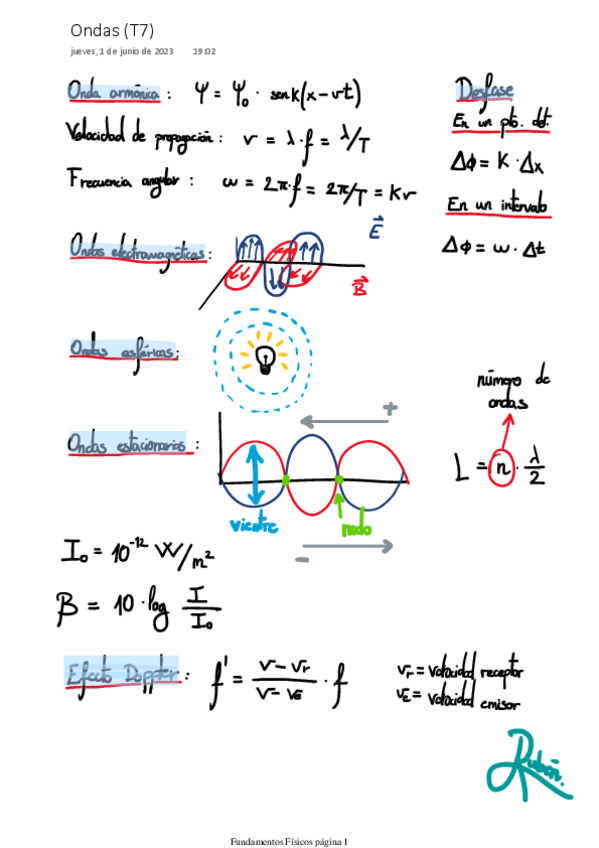 Ondas (T7)
jueves, 1 de junio de 2023 19:02
Onda armónica : Ψ = Ψ₀ · sen k(x - vt)
Velocidad de propagación : v = λ · f = λ/T
Frecuencia angular : ω = 2π·f = 2π/T = Kv
Desfase
En un pto. dt.
Δφ = K · Δx
En un intervalo
Δφ = ω · Δt
Ondas electromagnéticas :
E⃗
B⃗
Ondas esféricas :
Ondas estacionarias :
+
vientre
nodo
-
número de
ondas
L = n · λ/2
I₀ = 10⁻¹² W/m²
β = 10 · log I/I₀
Efecto Doppler : f' = (v - vᵣ)/(v - vₑ) · f
vᵣ = velocidad receptor
vₑ = velocidad emisor
Rubén.
Fundamentos Físicos página 1